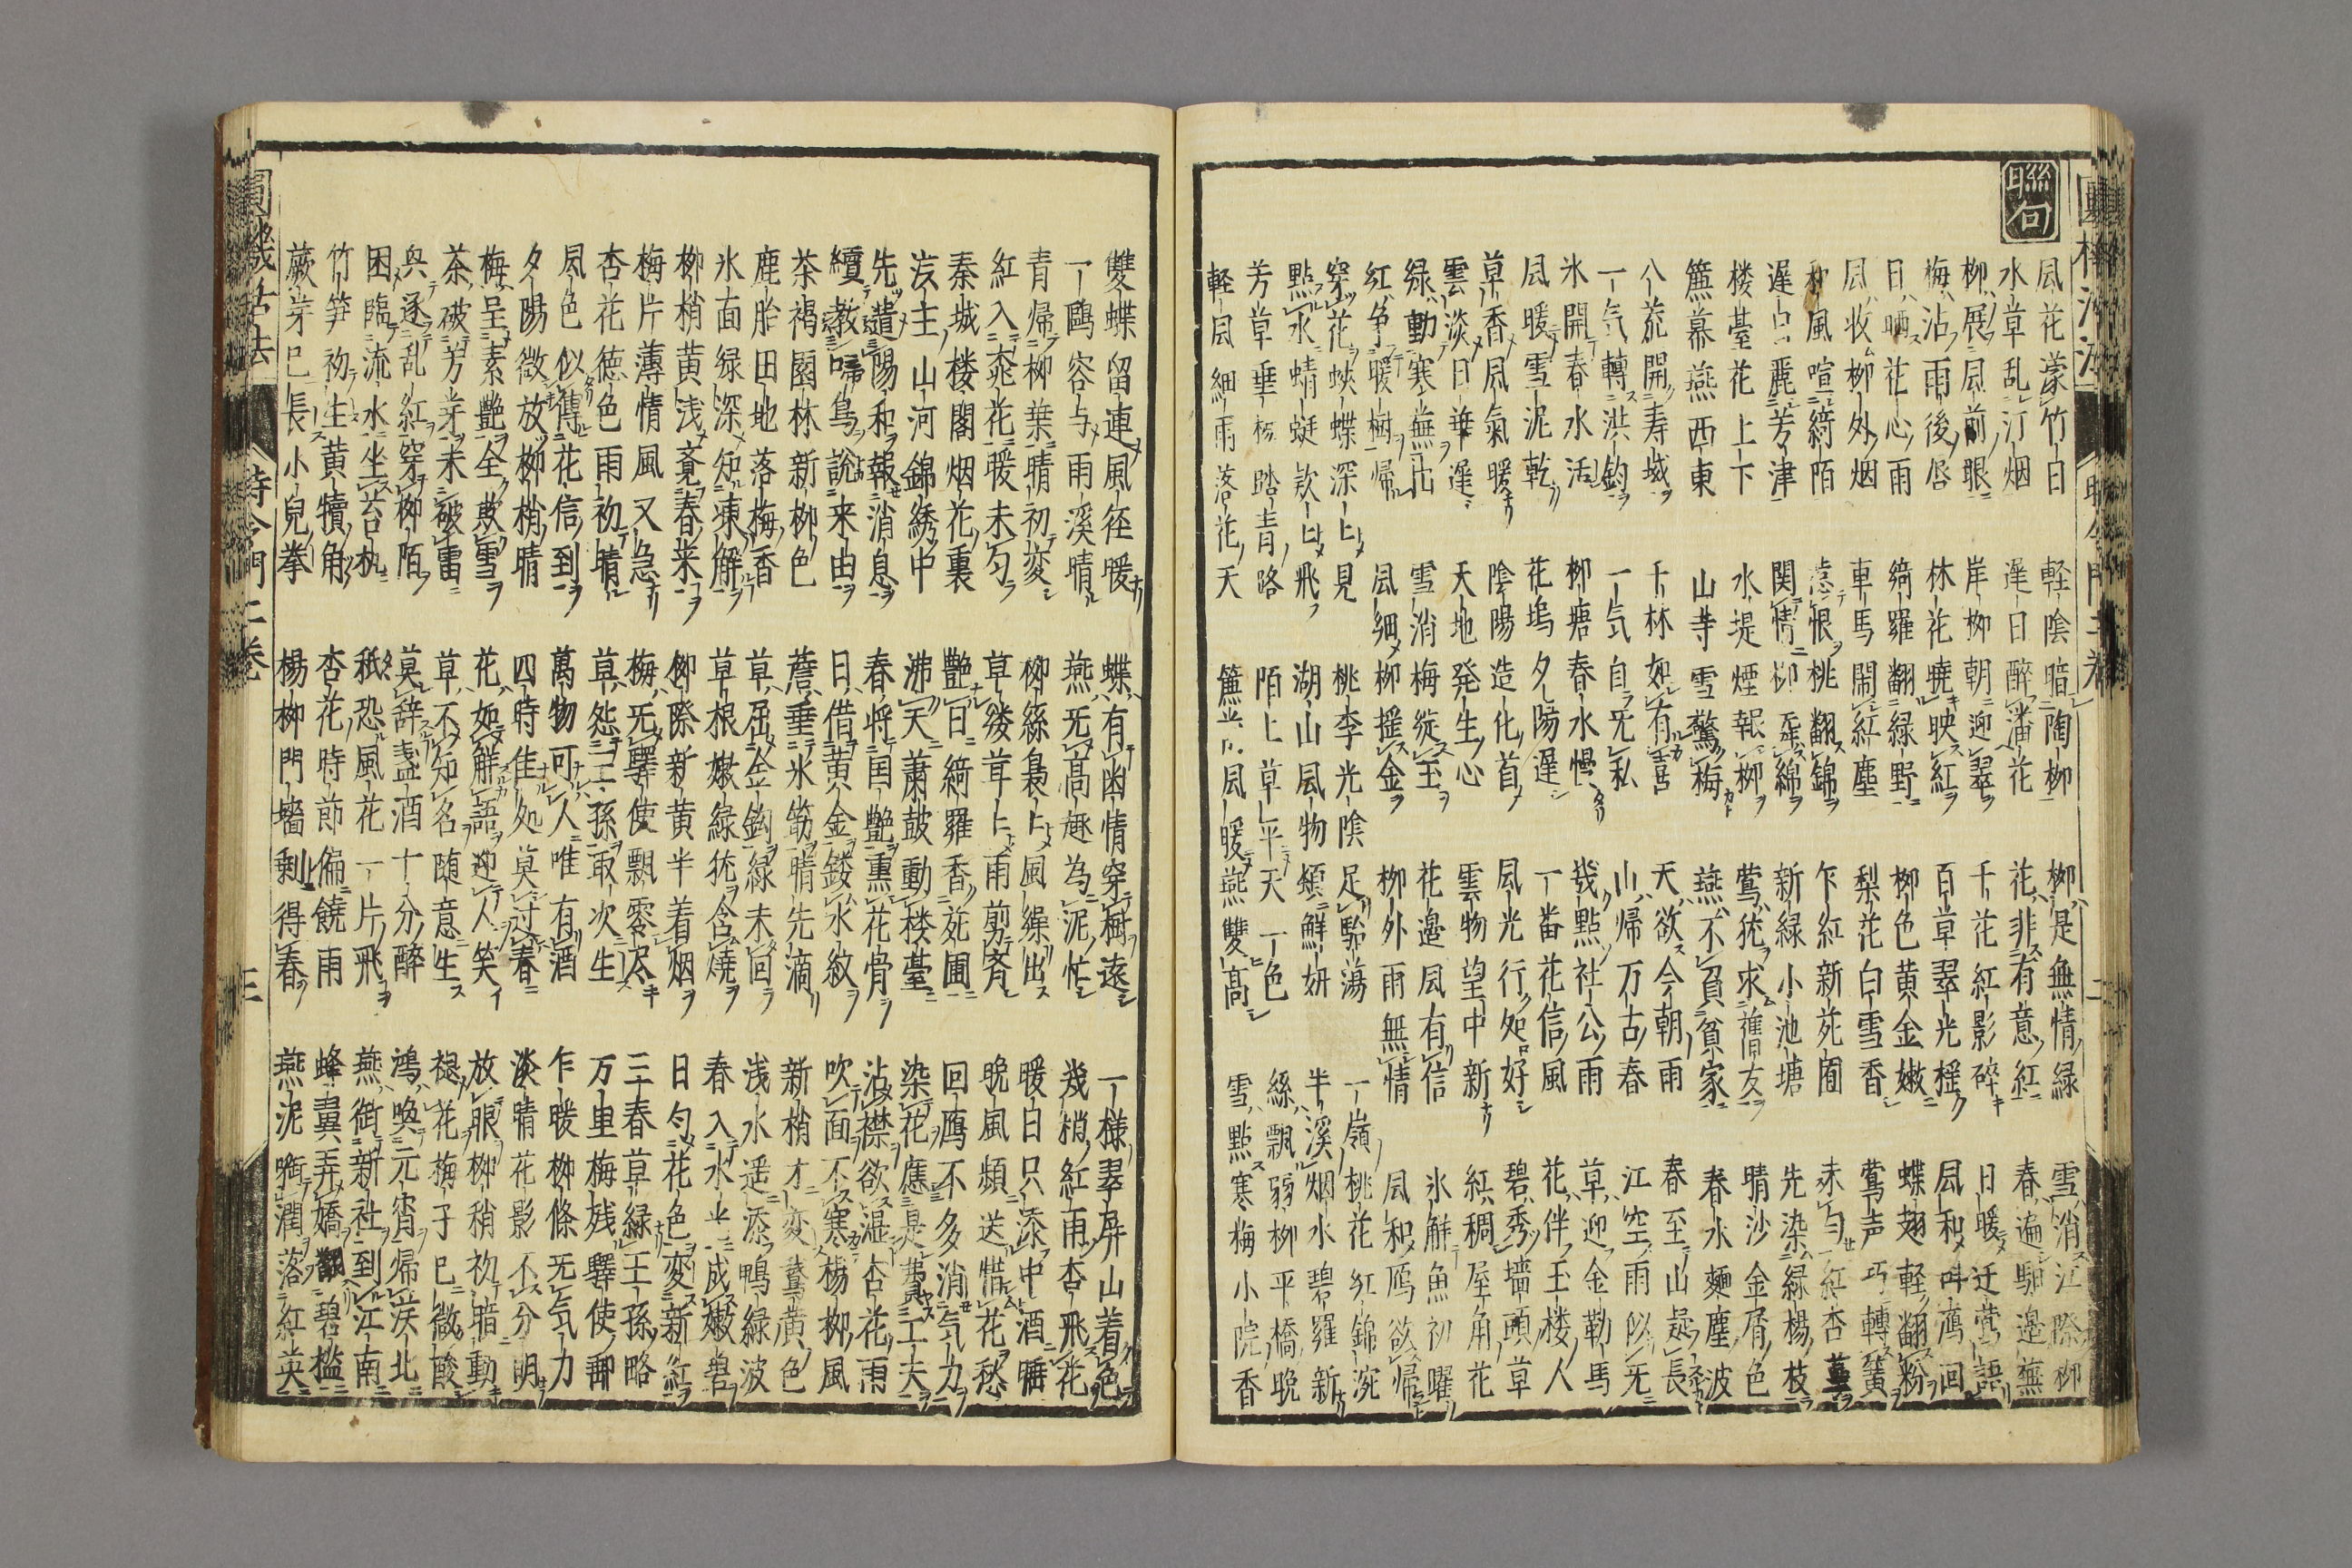 聯句
風花濛竹日 軽陰暗陶柳 柳是無情緑 雪消江際柳
水草乱汀烟 遅日醉潘花 花非有意紅 春遍馿邉蕪
柳展風前眼 岸柳朝迎翠 千花紅影碎 日暖迁莺語
梅沾雨後唇 林花曉映紅 百草翠光揺 風和叫鴈回
日晒花心雨 綺羅翻緑野 柳色黄金嫩 蝶翅軽翻粉
風收柳外烟 車馬鬧紅塵 梨花白雪香 鶯声巧轉簧
和風喧綺陌 惹恨桃翻錦 乍紅新苑囿 未匀紅杏萼
遅日麗芳津 関情柳垂綿 新緑小池塘 先染緑楊枝
楼臺花上下 水堤煙報柳 鶯猶求舊友 晴沙金屑色
簾幕燕西東 山寺雪驚梅 燕不負貧家 春水麹塵波
八荒開寿域 千林如有喜 天欲今朝雨 春至山長
一気轉洪鈞 一気自旡私 山帰万古春 江空雨似旡
氷開春水活 柳塘春水慢 幾點社公雨 草迎金勒馬
風暖雪泥乾 花塢夕陽遅 一番花信風 花伴玉楼人
草香風氣暖 陰陽造化首 風光行処好 碧秀墻頭草
雲淡日華遅 天地発生心 雲物望中新 紅稠屋角花
緑動寒蕪出 雪消梅綻玉 花邉風有信 氷觧魚初曜
紅争暖樹帰 風細柳揺金 柳外雨無情 風和鴈欲帰
穿花蛺蝶深ヒ見 桃李光陰足駘蕩 一嶺桃花紅錦涴
點水蜻蜓款ヒ飛 湖山風物頓鮮妍 半溪烟水碧羅新
芳草垂楊踏青路 陌上草平天一色 絲飄弱柳平橋晩
軽風細雨落花天 簾風暖燕雙高 雪點寒梅小院香
雙蝶留連風径暖 蝶有幽情穿樹遠 一様翠屏山着色
一鷗容与雨溪晴 燕旡高趣為泥忙 幾梢紅雨杏飛花
青帰柳葉晴初変 柳絲裊ヒ風繰出 暖白只添中酒睡
紅入桃花暖未匀 草縷茸ヒ雨剪斉 晩風頻送惜花愁
秦城楼閣烟花裏 艶日綺羅香苑圃 回鴈不多消気力
漢主山河錦綉中 沸天蕭皷動楼臺 染花應是費工夫
先遣陽和報消息 春将国艶熏花骨 沾襟欲湿杏花雨
續教啼鳥說来由 日借黄金鏤水紋 吹面不寒楊柳風
茶褐園林新柳色 簷垂氷筯晴先滴 新梢才変鵞黄色
鹿胎田地落梅香 草屈金鈎緑未回 浅水遥添鴨緑波
氷面緑深知凍解 草根嫩緑猶含燒 春入水成嫩碧
柳梢黄浅覚春来 柳際新黄半着烟 日匀花色変新紅
梅片薄情風又急 梅旡驛使飄零尽 三春草緑王孫路
杏花徳色雨初晴 草怨王孫取次生 万里梅残驛使郵
風色似傳花信到 萬物可人唯有酒 乍暖柳條旡気力
夕陽微放柳梢晴 四時佳処莫过春 淡晴花影不分明
梅呈素艶全欺雪 花如觧語迎人笑 放眼柳稍初暗動
茶破芳芽未破雷 草不知名随意生 褪花梅子已微酸
與逐乱紅穿柳陌 莫辞盞酒十分醉 鴻喚元宵帰漢北
困臨流水坐苔矶 秪恐風花一片飛 燕銜新社到江南
竹笋初生黄犢角 杏花時節偏饒雨 蜂翼弄嬌翻碧檻
蕨芽已長小兒拳 楊柳門墻剰得春 燕泥銜潤落紅英
圓機活法 時令門二巻 三